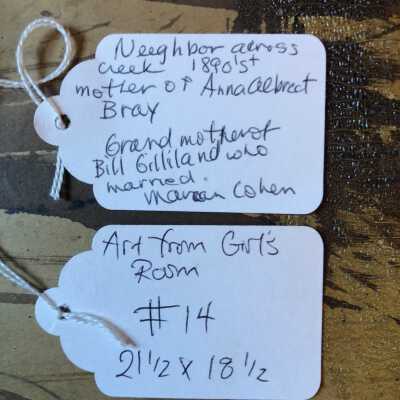 Neeghbor across
creek 1890's+
mother of Anna Albrect
Bray
Grand mother of
Bill Gilliland who
married.
Marian Cohen
Art from Girl's
Room
#14
21 1/2 x 18 1/2